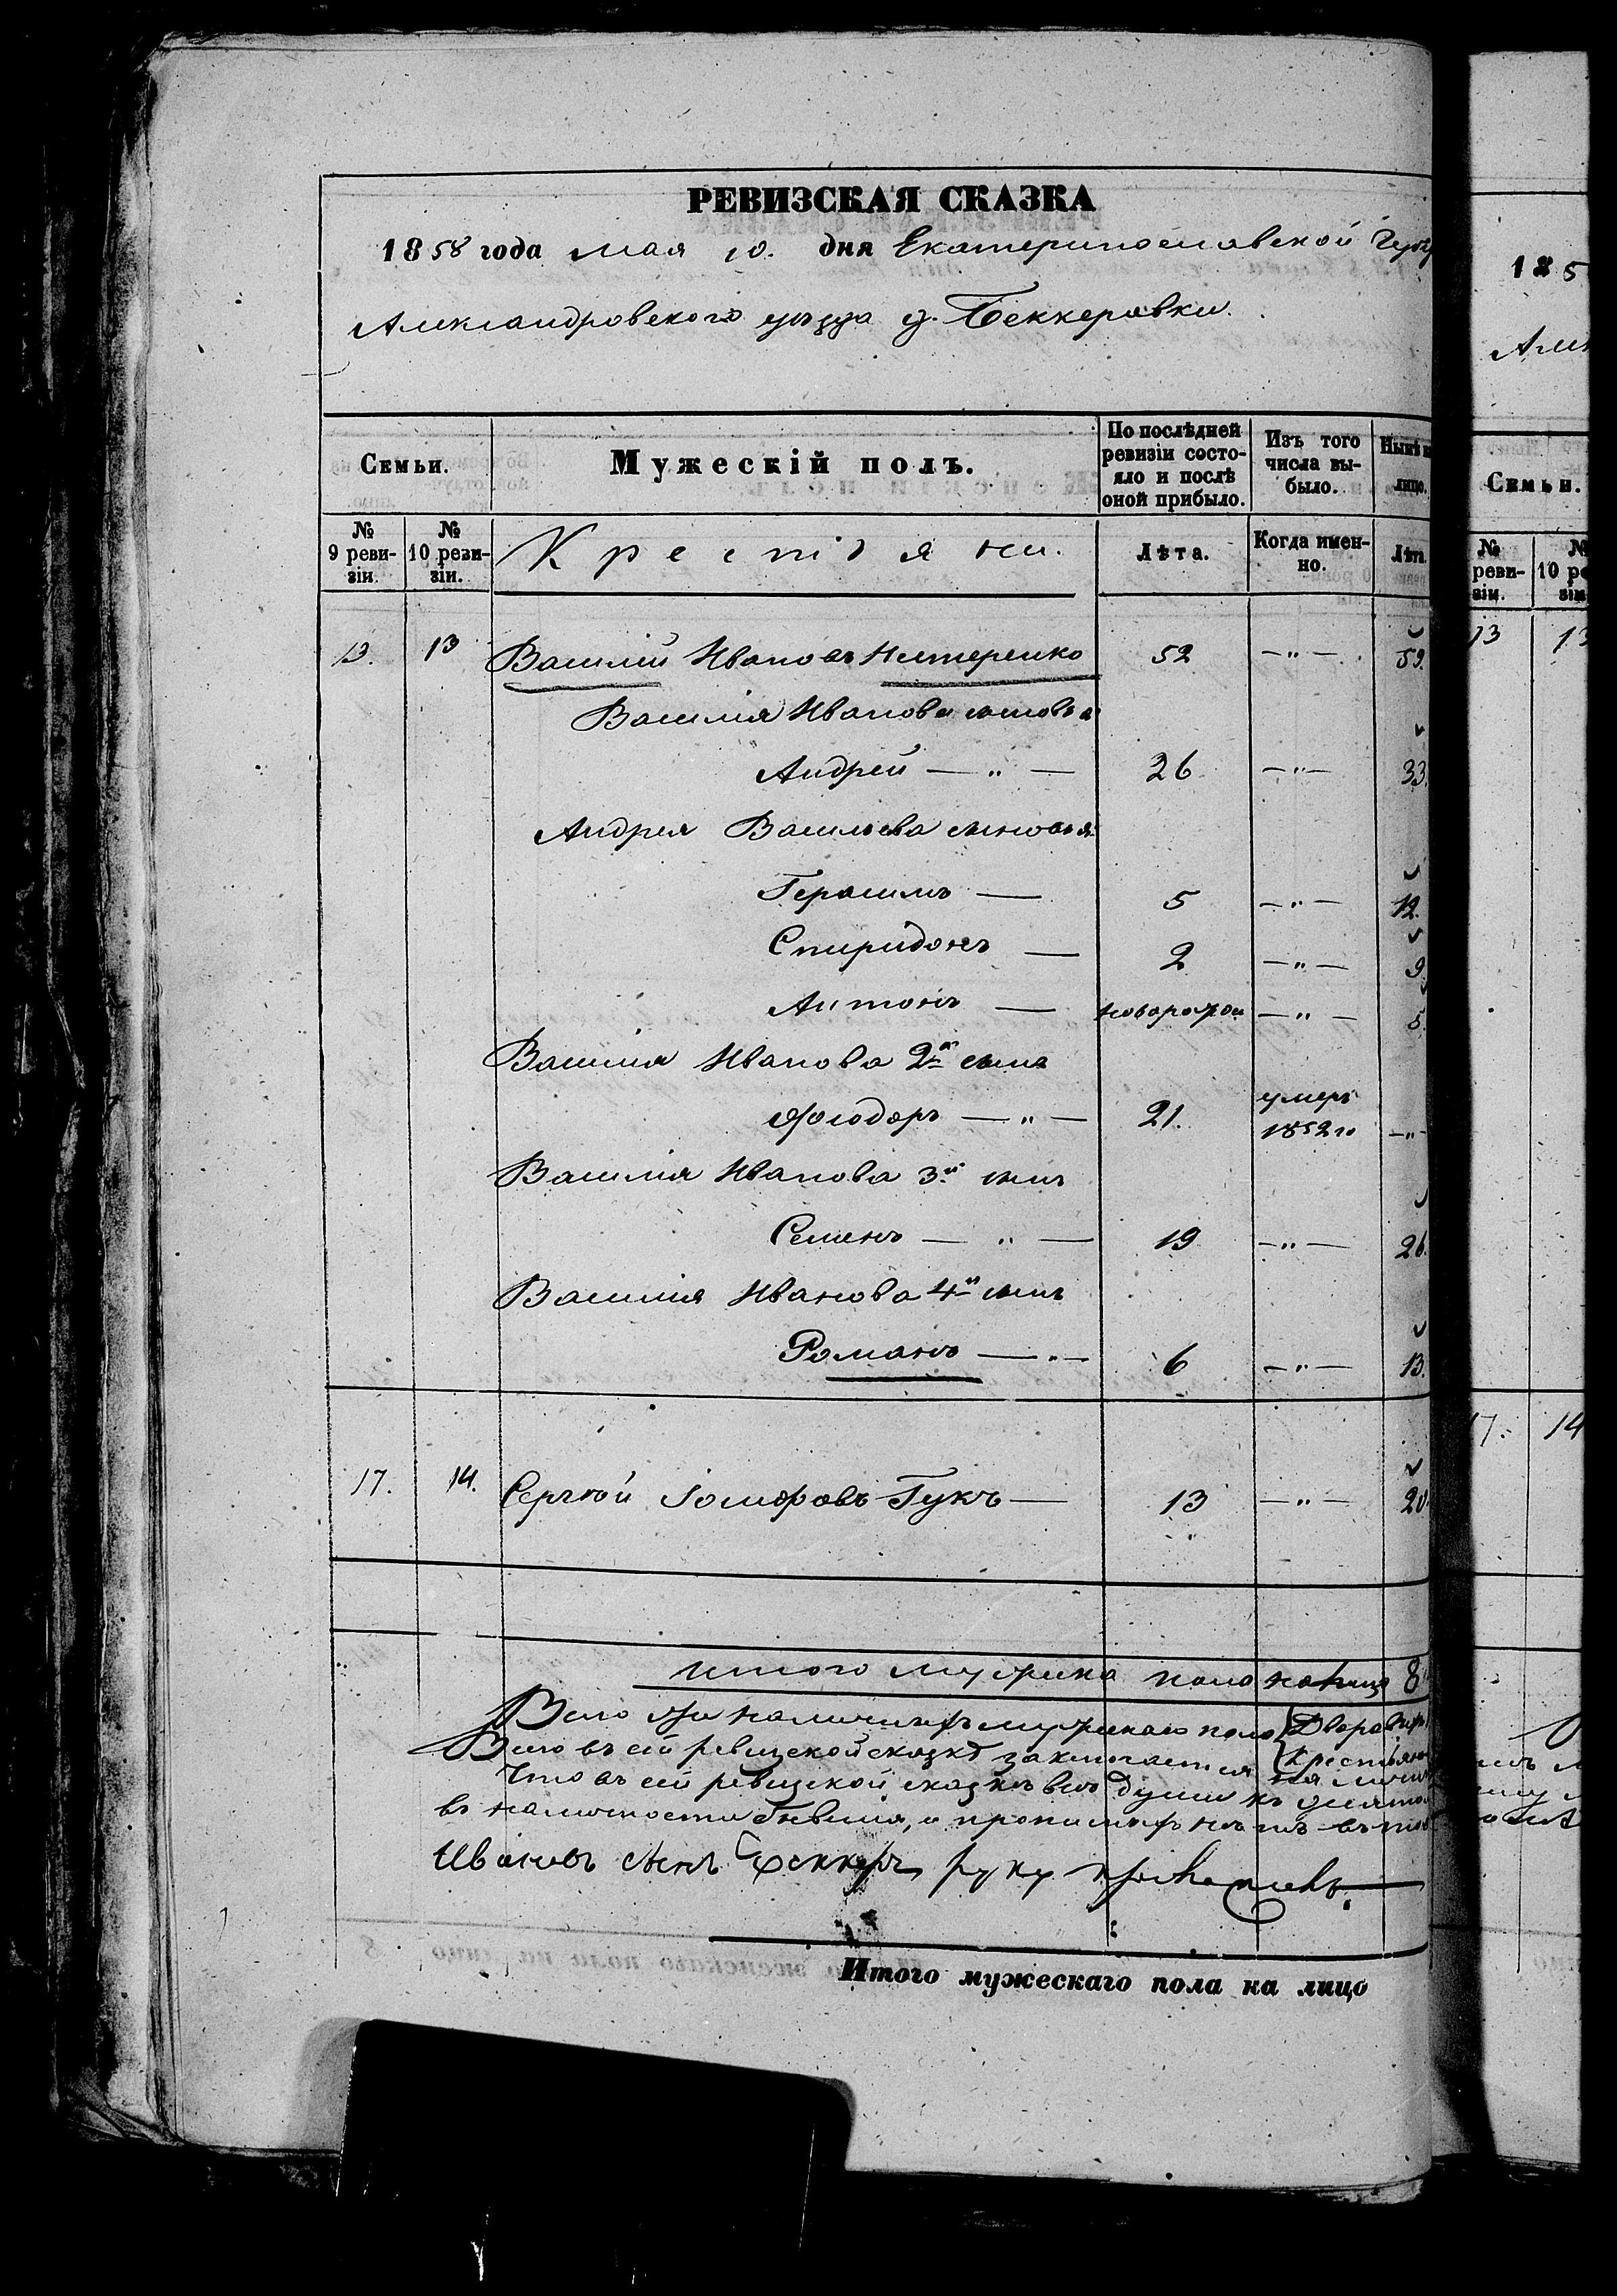 РЕВИЗСКАЯ СКАЗКА
1858 года мая 10. дня Екатеринославской Губ
Александровского уѣзда д. Беккеровки.
Семьи.
Мужескій полъ.
По послѣдней ревизіи состо-
яло и послѣ оной прибыло.
Изъ того числа вы-
было.
Нынѣ на лицо.
№ 9 реви-
зіи.
№ 10 реви-
зіи.
Крестьяни.
Лѣта.
Когда имен-
но.
Лѣта.
13. 13 Василій Ивановъ Нестеренко 52 — " — 59.
Василія Иванова сыновья
Андрей — " — 26 — " — 33.
Андрея Васильева сыновья
Герасимъ — 5 — " — 12.
Спиридонъ — 2 — " — 9
Антонъ — новорожден — " — 5.
Василія Иванова 2й сынъ
Фіодоръ — " — 21. умеръ 1852го — " —
Василія Иванова 3й сынъ
Семенъ — " — 19 — " — 26.
Василія Иванова 4й сынъ
Романъ — " — 6 — " — 13.
17. 14. Сергѣй Іосифовъ Гукъ — 13 — " — 20.
Итого мужска пола налицо 8
Всего же наличныхъ мужскаго пола Дворовыхъ
Всего въ сей ревизской сказкѣ заключается Крестьянъ
Что въ сей ревизской сказкѣ всѣ души къ
въ наличности бывшія, и прописныхъ нѣтъ въ том
Ивановъ сынъ Беккеръ руку приложилъ.
Итого мужескаго пола на лицо
185
Але
Семьи.
№ реви-
зіи.
№ 10 ре
зіи
13 13
17. 14